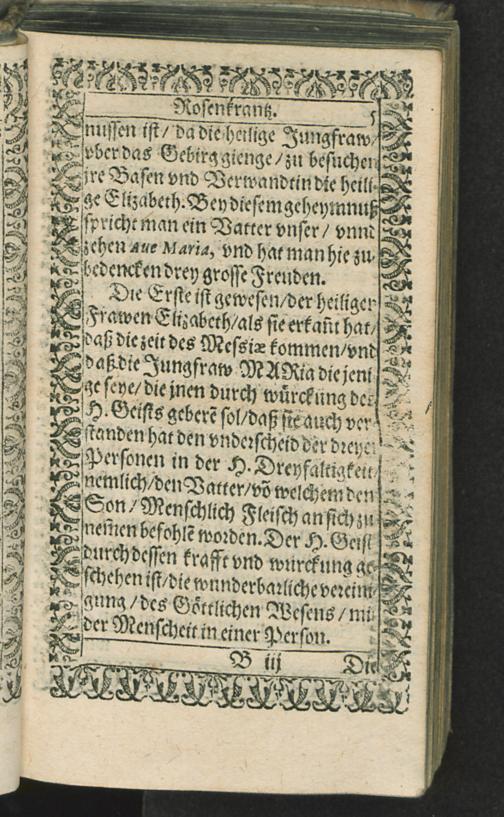 Rosenkrantz. 5
nussen ist / da die heilige Jungfraw /
vber das Gebirg gienge / zu besuchen
jre Basen vnd Verwandtin die heili-
ge Elizabeth. Bey diesem geheymnuß
spricht man ein Vatter vnser / vnnd
zehen Aue Maria, vnd hat man hie zu-
bedencken drey grosse Freuden.
Die Erste ist gewesen / der heiligen
Frawen Elizabeth / als sie erkañt hat /
daß die zeit des Messiæ kommen / vnd
daß die Jungfraw MARia die jeni-
ge seye / die jnen durch würckung des
H. Geists geberẽ sol / daß sie auch ver-
standen hat den vnderscheid der dreyen
Personen in der H. Dreyfaltigkeit /
nemlich / den Vatter / võ welchem den
Son / Menschlich Fleisch an sich zu
nem̃en befohlẽ worden. Der H. Geist
durch dessen krafft vnd würckung ge-
schehen ist / die wunderbarliche verein-
gung / des Göttlichen Wesens / mit
der Menscheit in einer Person.
B iij Die